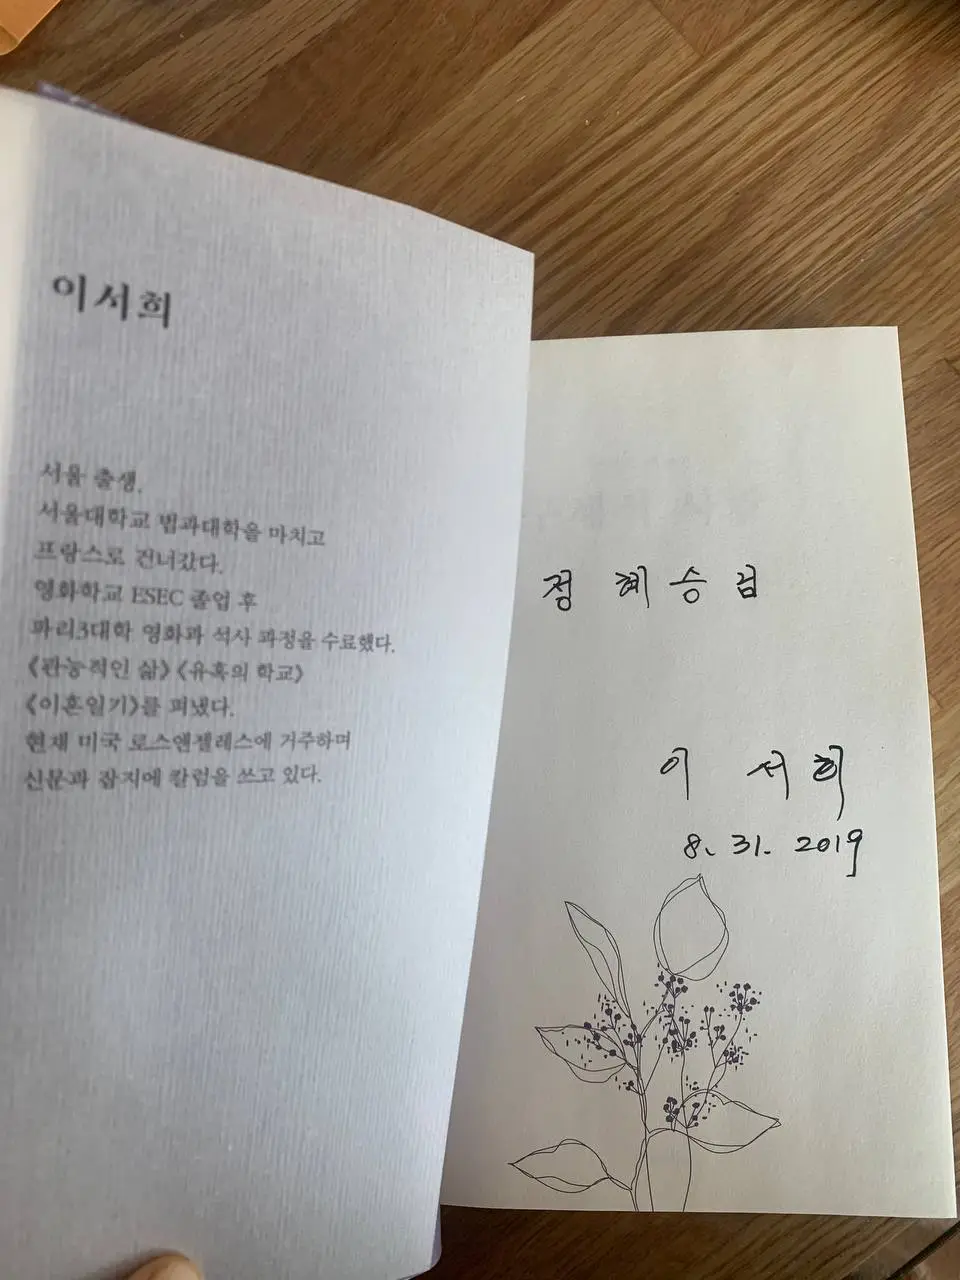 이서희
서울 출생.
서울대학교 법과대학을 마치고
프랑스로 건너갔다.
영화학교 ESEC 졸업 후
파리3대학 영화과 석사 과정을 수료했다.
《관능적인 삶》 《유혹의 학교》
《이혼일기》를 펴냈다.
현재 미국 로스앤젤레스에 거주하며
신문과 잡지에 칼럼을 쓰고 있다.
정 혜 승 님
이 서 희
8. 31. 2019